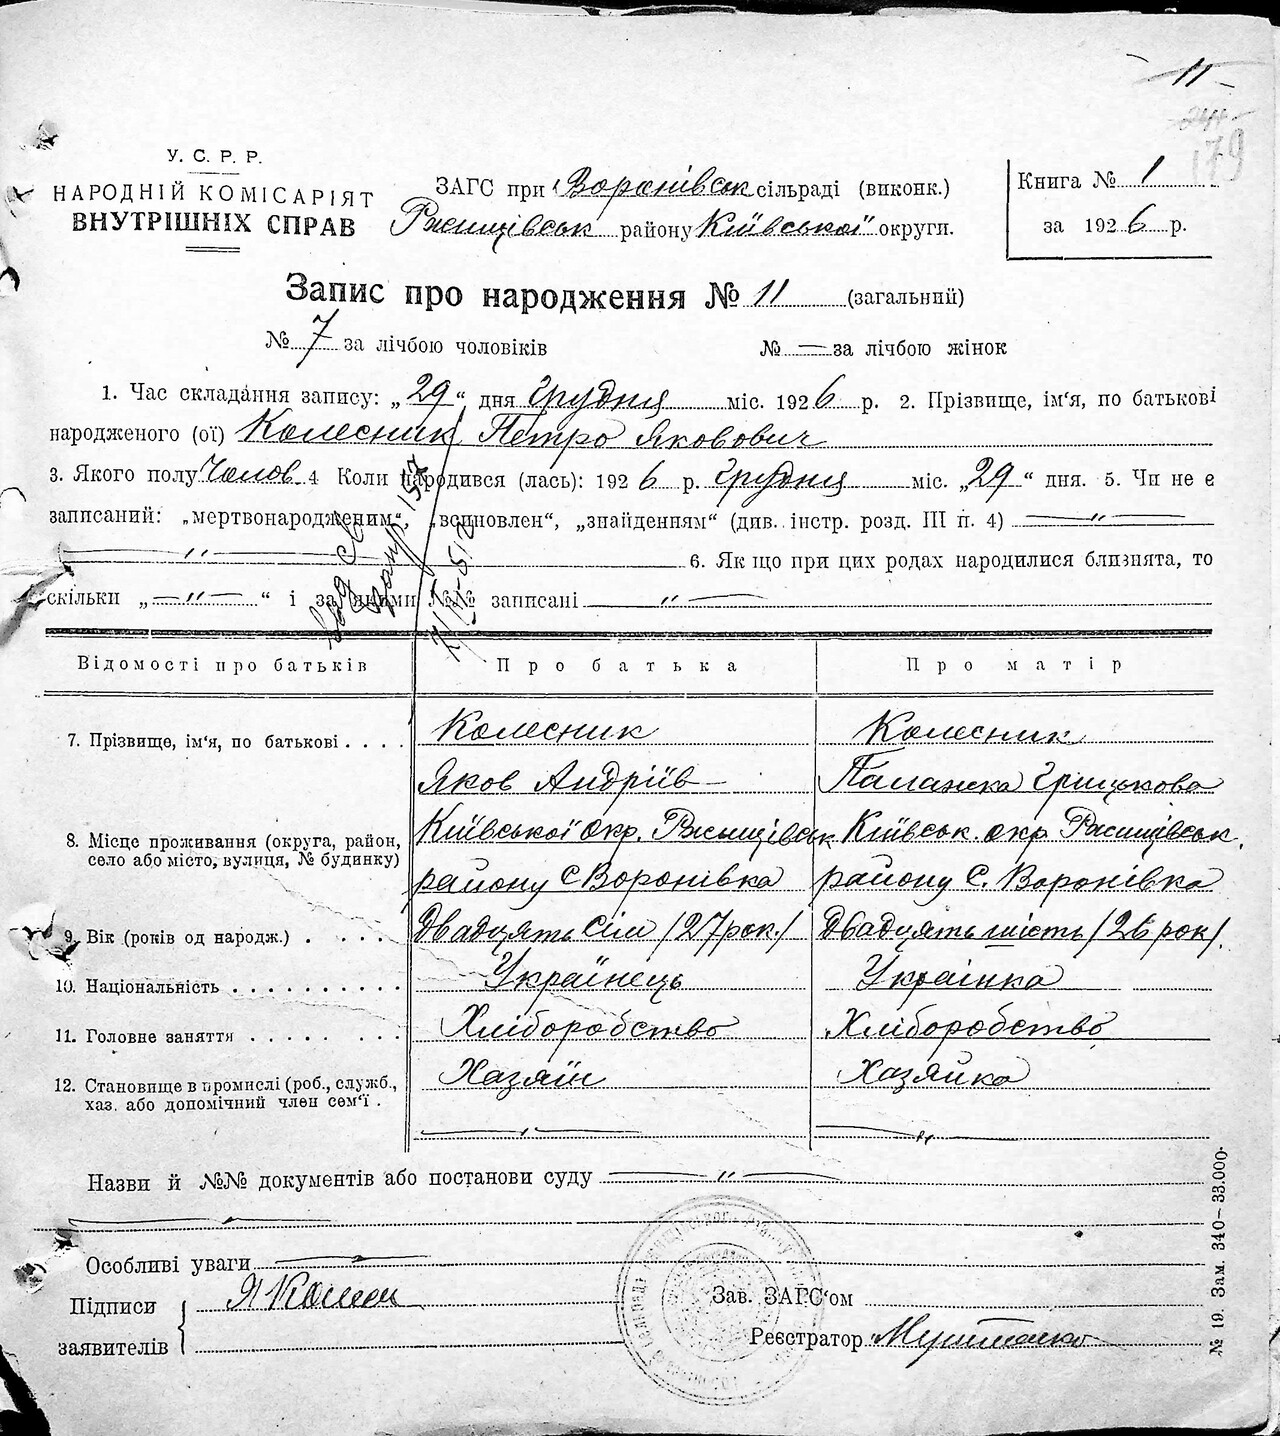 11
179
У. С. Р. Р.
НАРОДНІЙ КОМІСАРІЯТ
ВНУТРІШНІХ СПРАВ
ЗАГС при Воронівськ сільраді (виконк.)
Ржищівськ району Київської округи.
Книга № 1
за 1926 р.
Запис про народження № 11 (загальний)
№ 7 за лічбою чоловіків № — за лічбою жінок
1. Час складання запису: „29“ дня грудня міс. 1926 р. 2. Прізвище, ім'я, по батькові
народженого (ої) Колесник Петро Якович
3. Якого полу Чолов. 4 Коли народився (лась): 1926 р. грудня міс. „29“ дня. 5. Чи не є
записаний: „мертвонародженим“, „всиновлен“, „знайденням“ (див. інстр. розд. III п. 4) — „ —
— „ — 6. Як що при цих родах народилися близнята, то
скільки „— „ —“ і за якими №№ записані — „ —
Відомості про батьків Про батька Про матір
7. Прізвище, ім'я, по батькові . . . . Колесник Колесник
Яков Андріїв Палажка Грицькова
8. Місце проживання (округа, район, Київської окр. Ржищівськ Київськ. окр. Ржищівськ.
село або місто, вулиця, № будинку) району С Воронівка району С. Воронівка
9. Вік (років од народж.) . . . . . Двадцять сім (27 рок.) Двадцять шість (26 рок).
10. Національність . . . . . . . . . . Українець Українка
11. Головне заняття . . . . . . . . Хліборобство Хліборобство
12. Становище в промислі (роб., служб., Хазяїн Хазяйка
хаз. або допомічний член сем'ї .
Назви й №№ документів або постанови суду — „ —
Особливі уваги
Підписи
заявителів
Зав. ЗАГС'ом
Реєстратор
№ 19. Зам. 340–33.000.